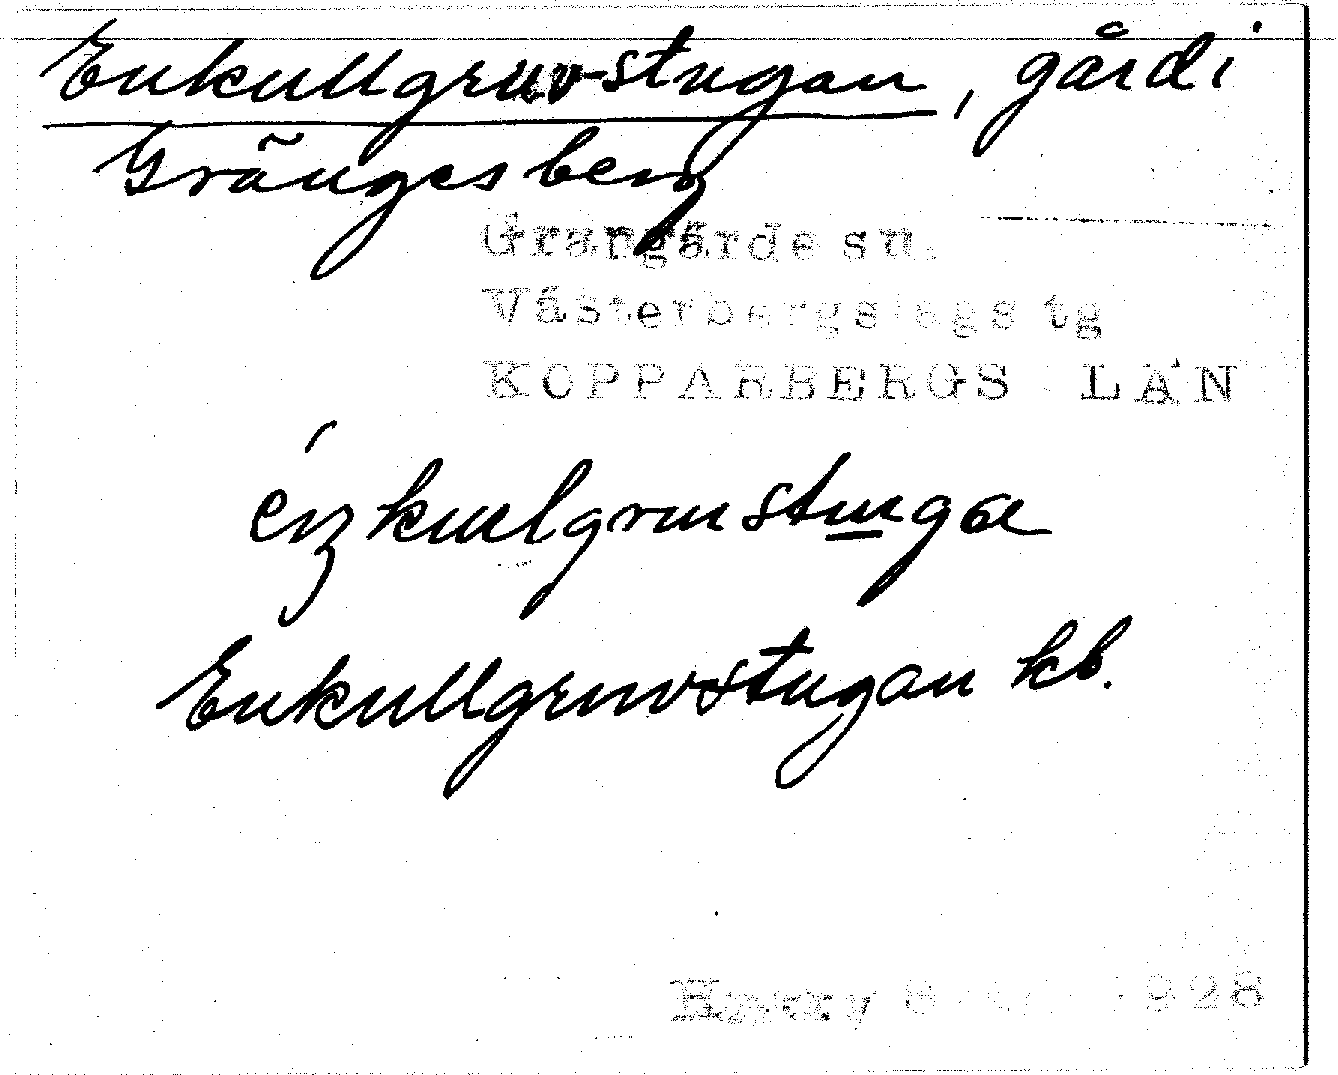 Enkullgruvstugan, gård i
Grängesberg
Grangärde sn.
Västerbergslags tg
KOPPARBERGS LÄN
énkulgruvstugα
Enkullgruvstugan kb.
Harry 1928